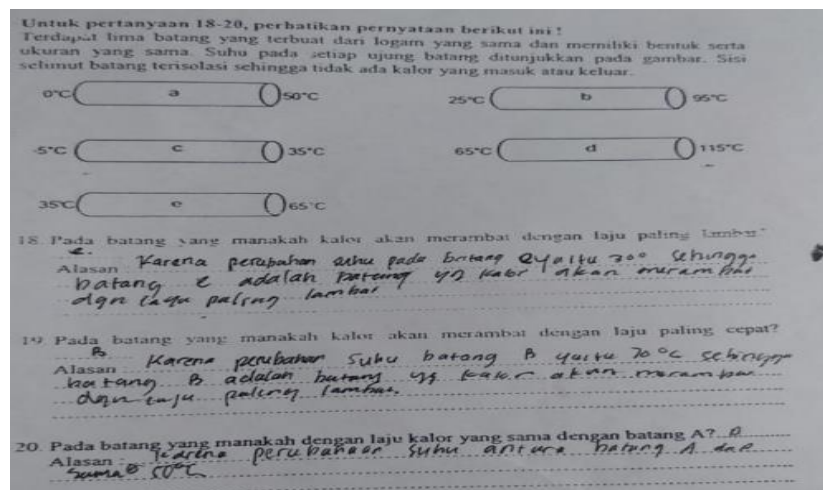 Untuk pertanyaan 18-20, perhatikan pernyataan berikut ini !
Terdapat lima batang yang terbuat dari logam yang sama dan memiliki bentuk serta
ukuran yang sama. Suhu pada setiap ujung batang ditunjukkan pada gambar. Sisi
selimut batang terisolasi sehingga tidak ada kalor yang masuk atau keluar.
0°C a 50°C
25°C b 95°C
-5°C c 35°C
65°C d 115°C
35°C e 65°C
18. Pada batang yang manakah kalor akan merambat dengan laju paling lambat?
e.
Alasan Karena perubahan suhu pada batang e yaitu 30° sehingga
batang e adalah batang yg kalor akan merambat
dgn laju paling lambat
19. Pada batang yang manakah kalor akan merambat dengan laju paling cepat?
B
Alasan Karena perubahan suhu batang B yaitu 70°C sehingga
batang B adalah batang yg kalor akan merambat
dgn laju paling lambat.
20. Pada batang yang manakah dengan laju kalor yang sama dengan batang A? D
Alasan : Karena perubahan suhu antara batang A dan
sama 50°C